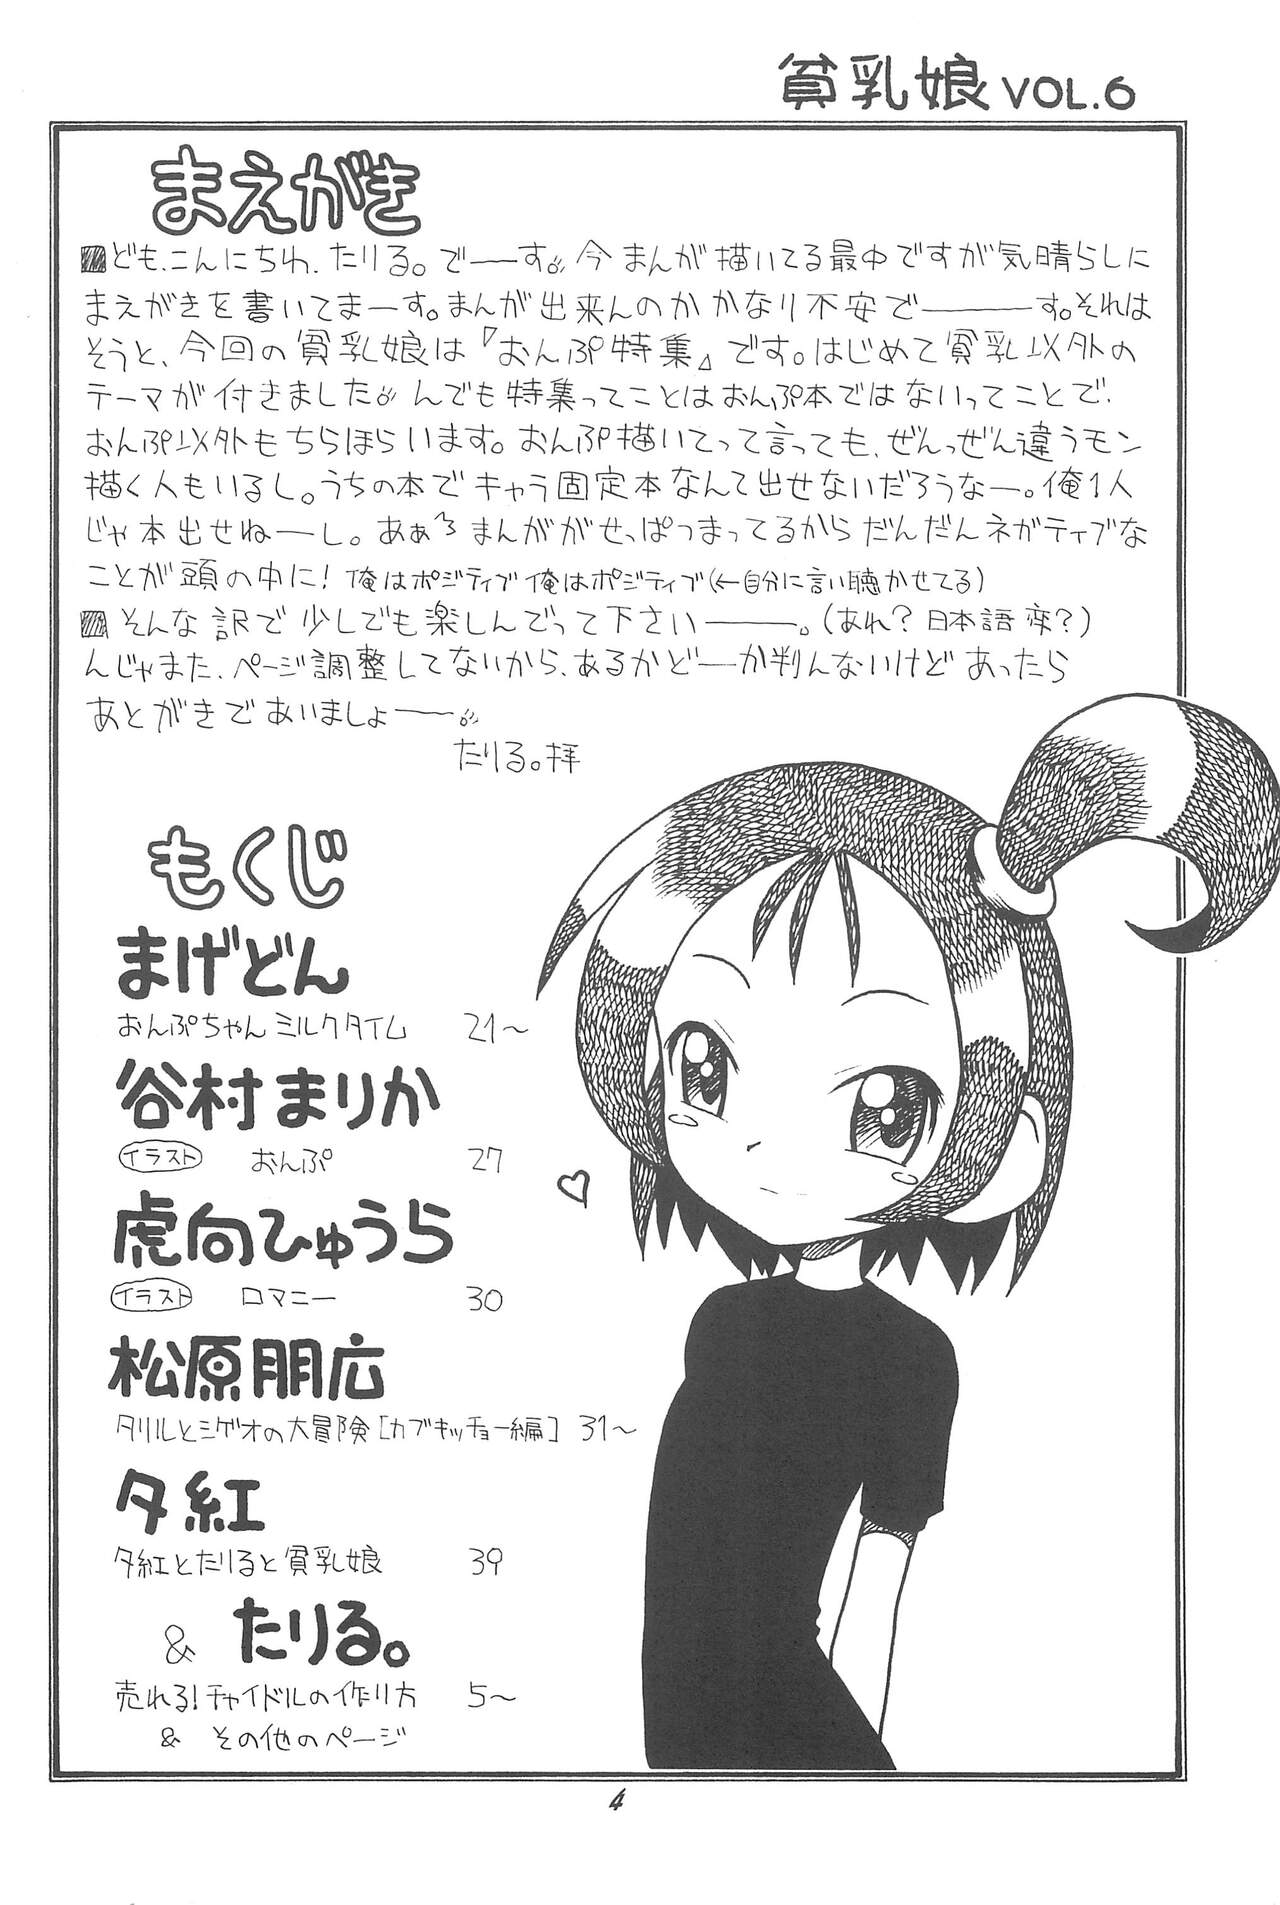 貧乳娘 VOL.6
まえがき
ども、こんにちわ、たりる。でーーす。今 まんが描いてる最中ですが気晴らしに
まえがきを書いてまーす。まんが出来んのか かなり不安でーーーす。それは
そうと、今回の貧乳娘は『おんぷ特集』です。はじめて貧乳以外の
テーマが付きました んでも特集ってことはおんぷ本ではないってことで、
おんぷ以外もちらほらいます。おんぷ描いてって言っても、ぜんっぜん違うモン
描く人もいるし。うちの本でキャラ固定本なんて出せないだろうなー。俺1人
じゃ本出せねーーし。あぁ〜まんががせっぱつまってるからだんだんネガティブな
ことが頭の中に! 俺はポジティブ 俺はポジティブ(←自分に言い聴かせてる)
そんな訳で少しでも楽しんでって下さいーーー。(あれ?日本語変?)
んじゃまた、ページ調整してないから、あるかどーか判んないけど あったら
あとがきであいましょーー。
たりる。拝
もくじ
まげどん
おんぷちゃんミルクタイム 21〜
谷村まりか
イラスト おんぷ 27
虎向ひゅうら
イラスト ロマニー 30
松原朋広
タリルとシゲオの大冒険[カブキッチョー編] 31〜
夕紅
夕紅とたりると貧乳娘 39
& たりる。
売れる!チャイドルの作り方 5〜
& その他のページ
4